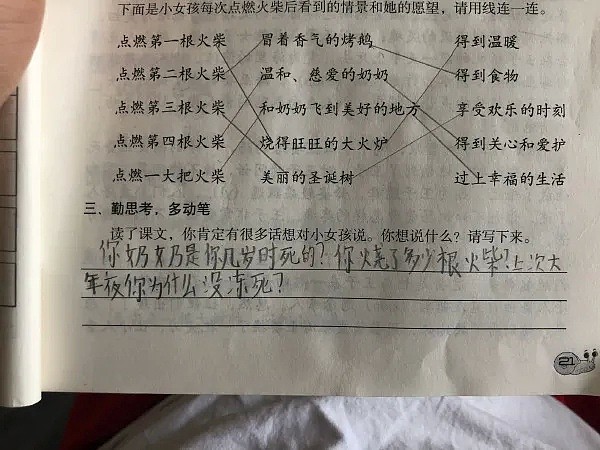 下面是小女孩每次点燃火柴后看到的情景和她的愿望，请用线连一连。
点燃第一根火柴 冒着香气的烤鹅 得到温暖
点燃第二根火柴 温和、慈爱的奶奶 得到食物
点燃第三根火柴 和奶奶飞到美好的地方 享受欢乐的时刻
点燃第四根火柴 烧得旺旺的大火炉 得到关心和爱护
点燃一大把火柴 美丽的圣诞树 过上幸福的生活
三、勤思考，多动笔
读了课文，你肯定有很多话想对小女孩说。你想说什么？请写下来。
你奶奶是你几岁时死的？你烧了多少根火柴？上次大
年夜你为什么没冻死？
21